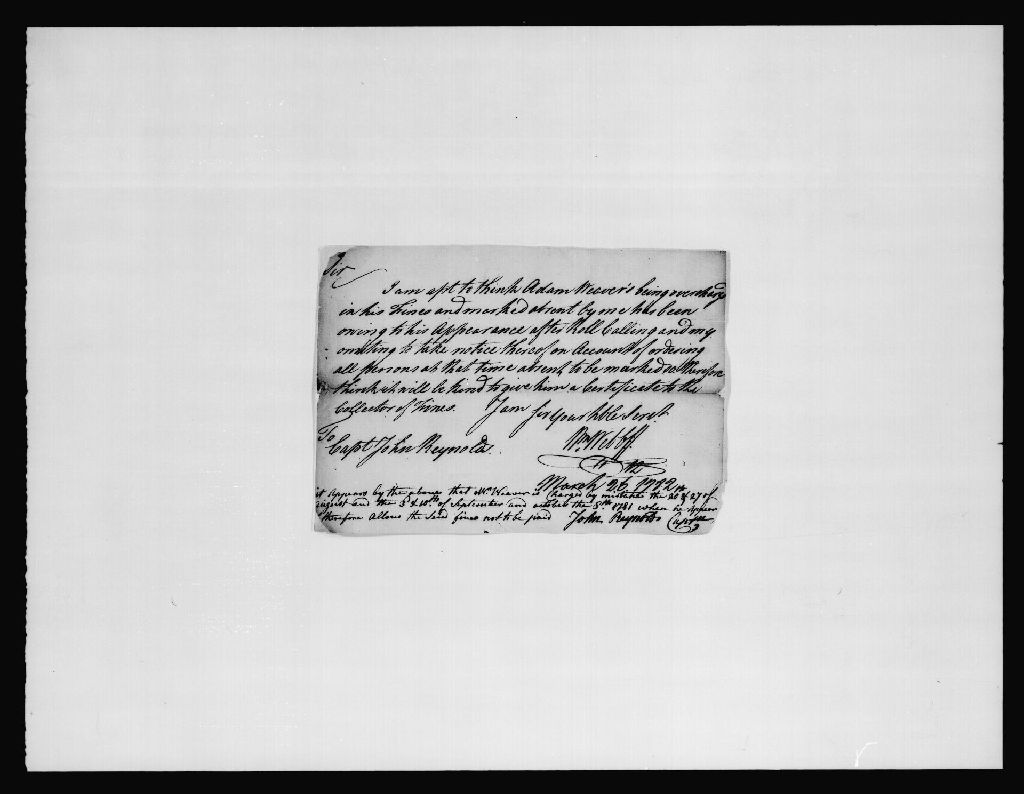 Sir
I am apt to think Adam Weaver's being overcharg
in his Fines and marked absent by me has been
owing to his Appearance after Roll Calling and my
omitting to take notice thereof on Account of ordering
all persons at that time absent to be marked so therefore
think it will be kind to give him a Certificate to the
Collector of Fines. I am Sir your Hble Servt.
To Capt John Reynolds. Wm Webb
March 26 1782
it Appears by the above that Mr. Weaver is Charged by mistake the 20 & 27 of
August and the 3d & 10th of September and october the 8th 1781 when he Appear
therefore allows the said fines not to be paid John Reynolds Capt